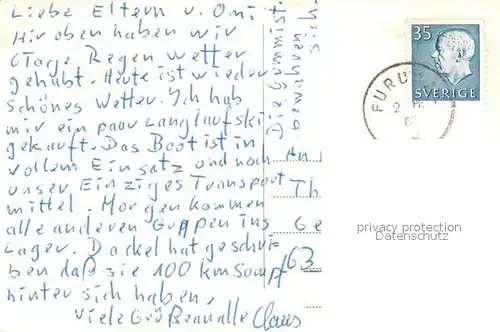 Liebe Eltern u. Omi
Hir oben haben wir
6 Tage Regen wetter
gehabt. Heute ist wieder
schönes Wetter. Ich hab
mir ein paar Langlaufski
gekauft. Das Boot ist in
vollem Einsatz und noch
unser Einziges Transport
mittel. Morgen kommen
alle anderen Gruppen ins
Lager. Dackel hat geschri-
ben daß sie 100 km Sumpf
hinter sich haben,
Viele Grüße an alle Claus
An
Th
Ge
63
35
SVERIGE
FURU
privacy protection
Datenschutz